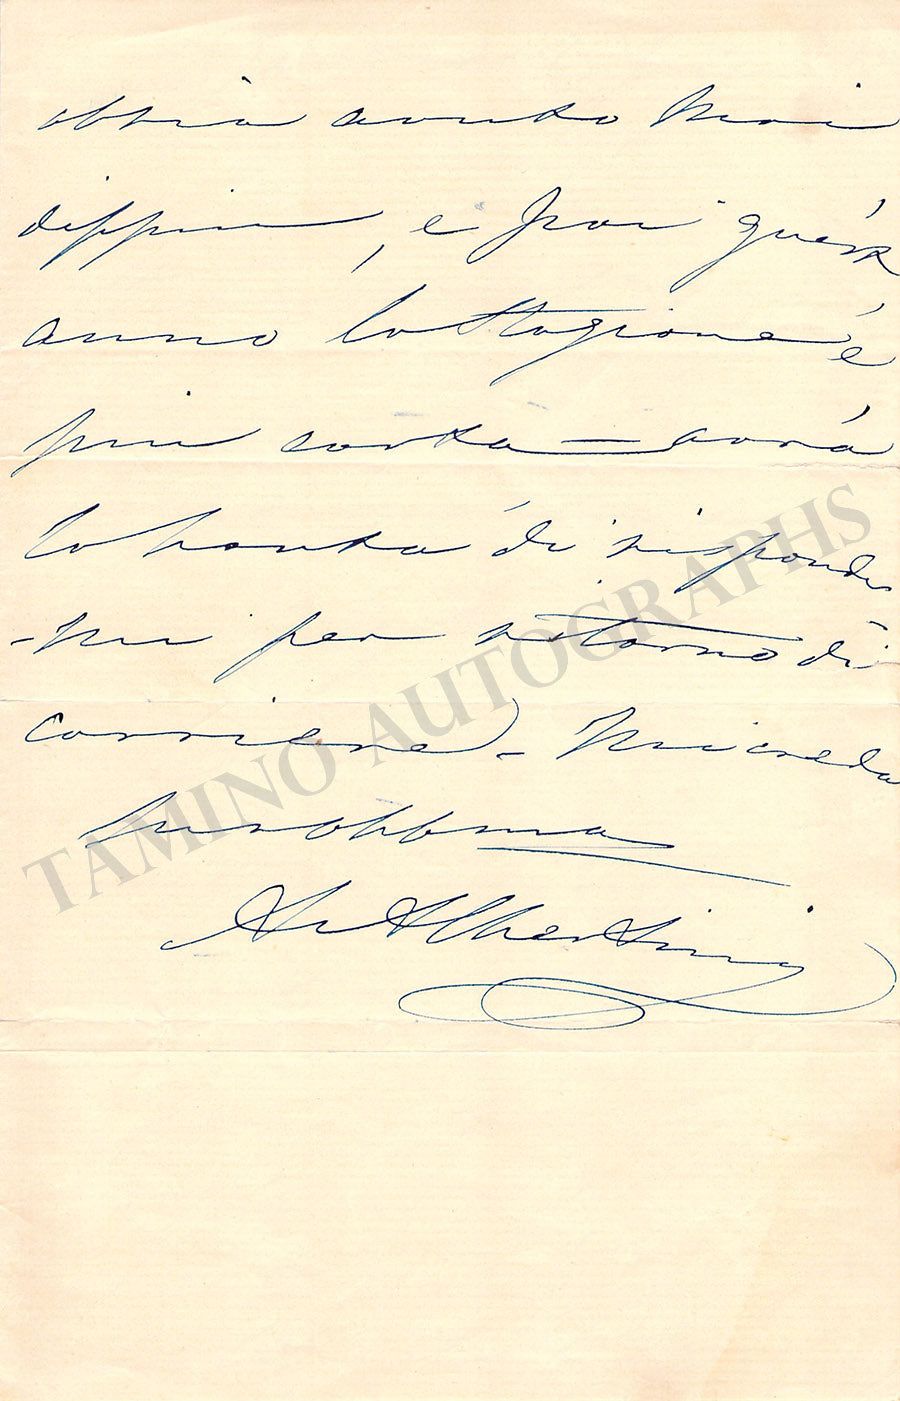 abbia avuto mai
dippiù, e poi quest'
anno la stagione è
più corta — avrà
la bontà di risponder
-mi per ritorno di
corriere) - Mi creda
TAMINO AUTOGRAPHS